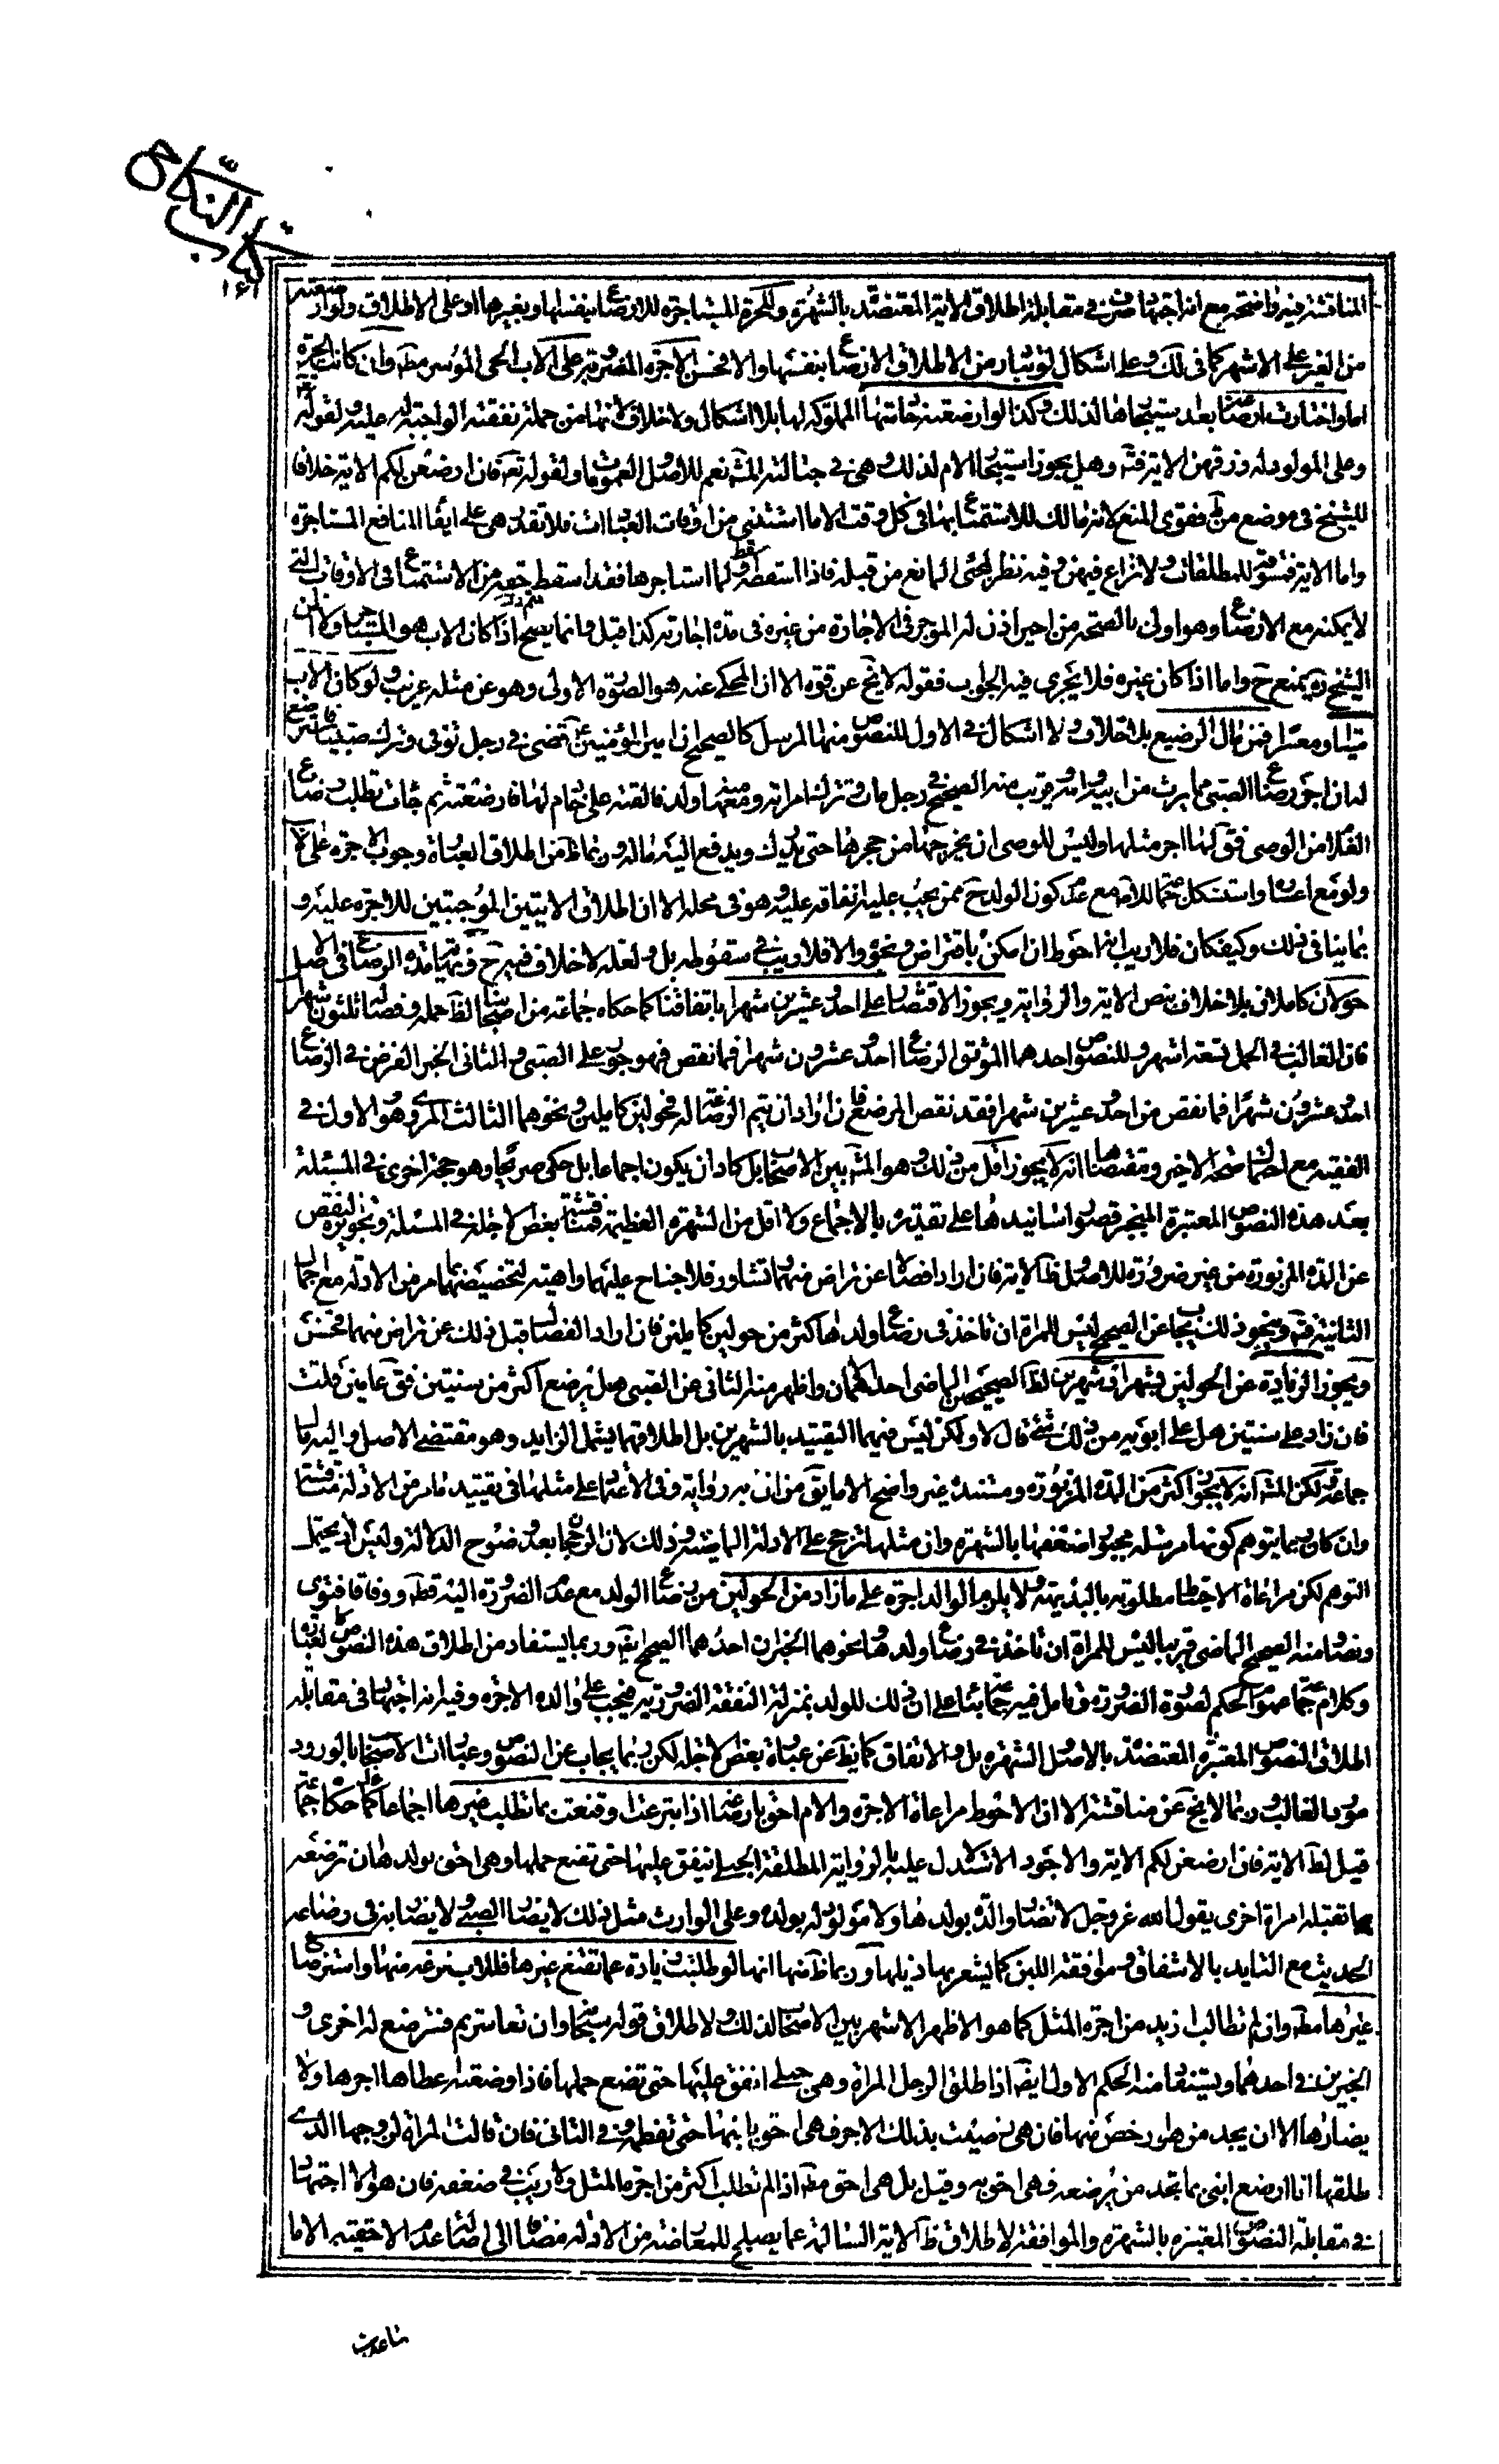 كتاب النكاح
١٦١
المناقشة فيه واضحة مع انه اجتهاد صرف في مقابلة اطلاق الاية المعتضد بالشهرة وللحرة المستاجرة للارضاع بنفسها وبغيرها او على الاطلاق ولو ارضعته
من الغير على الاشهر كما في لك وعلى اشكال لو تبادر من الاطلاق الارضاع بنفسها والافحسن الاجرة المضروبة على الاب الحى الموسر مطه وان كانت الحرة
امها واختارت ارضاعه بعد استيجارها لذلك وكذا لو ارضعته خادمتها المملوكة لها بلا اشكال ولا خلاف لانها من جملة نفقته الواجبة له عليه ولقوله تع
وعلى المولود له رزقهن الاية فته وهل يجوز استيجار الام لذلك وهى في حبالته المشه نعم للاصل والعمومات ولقوله تعه فان ارضعن لكم الاية خلافا
للشيخ في موضع من ط فقوى المنع لانه مالك للاستمتاع بها في كل وقت الا ما استثنى من اوقات العبادات فلا تقدر هى على ايفاء المنافع المستاجرة
واما الاية فمسوقة للمطلقات ولا نزاع فيهن وفيه نظر لمجئ المانع من قبله فاذا اسقطه سقط ولما استاجرها فقد اسقط حقه من الاستمتاع في الاوقات التى
لا يمكنه مع الارضاع وهو اولى بالصحة من اجير اذن له الموجر في الاجارة من غيره في مدة اجارته كذا قيل وانما يصح اذا كان الاب هو المستاجر ولا ان
الشيخ ره يمنع ح واما اذا كان غيره فلا يجرى فيه الجواب فقوله لا يخ عن قوة الا ان المحكى عنه هو الصورة الاولى وهو عن مثله غريب ولو كان الاب
ميتا او معسرا فمن مال الرضيع بلا خلاف ولا اشكال في الاول للنصوص منها المرسل كالصحيح ان امير المؤمنين ع قضى في رجل توفى وترك صبيا فاسترضع
له ان اجر رضاع الصبى مما يرث من ابيه وامه وقريب منه الصحيح في رجل مات وترك امراته ومعها منه ولد فالقته على خادم لها فارضعته ثم جائت تطلب رضاع
الغلام من الوصى فق لها اجر مثلها وليس للوصى ان يخرجه من حجرها حتى يدرك ويدفع اليه ماله وربما ظ من اطلاق العبارة وجوب الاجرة على الاب
ولو مع اعساره واستشكل جماعة مع عدم كون الولد ح ممن يجب عليه انفاقه عليه وهو في محله الا ان اطلاق الايتين الموجبتين للاجرة عليه و
بما ينافى ذلك وكيف كان فلا ريب انه احوط ان امكن باقتراض ونحوه والا فلا ريب في سقوطه بل ولعله لا خلاف فيه ح ونهاية مدة الرضاع في الاصل
حولان كاملان بلا خلاف بنص الاية والرواية ويجوز الاقتصار على احد وعشرين شهرا باتفاقنا كما حكاه جماعة من اصحابنا لظ حمله وفصاله ثلثون شهرا
فان الغالب في الحمل تسعة اشهر وللنصوص احدهما الموثق الرضاع احد وعشرون شهرا فما نقص فهو جور على الصبى والثانى الخبر الفرض في الرضاع
احد وعشرون شهرا فما نقص من احد وعشرين شهرا فقد نقص المرضع فان اراد ان يتم الرضاعة له فحولين كاملين ونحوهما الثالث المروى هو الاول في
الفقيه مع احتمال صحة الاخير ومقتضاها انه لا يجوز اقل من ذلك وهو المشه بين الاصحاب بل كاد ان يكون اجماعا بل حكى صريحا وهو حجة اخرى في المسئلة
بعد هذه النصوص المعتبرة المنجبر قصور اسانيدها على تقديره بالاجماع ولا اقل من الشهرة العظيمة فمناقشة بعض الاجلة في المسئلة وتجويزه النقص
عن المدة المزبورة من غير ضرورة للاصل وظ الاية فان ارادا فصالا عن تراض منهما وتشاور فلا جناح عليهما واهية لتخصيصهما بما مر من الادلة مع اجمال
الثانية فته وبنحو ذلك يجاب عن الصحيح ليس للمراة ان تاخذ في رضاع ولدها اكثر من حولين كاملين فان ارادا الفصال قبل ذلك عن تراض منهما فحسن
ويجوز الزيادة عن الحولين بشهر او شهرين لظ الصحيحين الماضى احدهما ان واظهر منه الثانى عن الصبى هل يرضع اكثر من سنتين فق عامين قلت
فان زاد على سنتين هل على ابويه من ذلك شئ قال لا ولكن ليس فيهما التقييد بالشهرين بل اطلاقهما يشمل الزايد وهو مقتضى الاصل واليه مال
جماعة ولكن المشه انه لا يجوز اكثر من المدة المزبورة ومستنده غير واضح الا ما يق من ان به رواية وفي الاعتماد على مثلها في تقييد ما مر من الادلة مناقشة
وان كان ربما يتوهم كونها مرسلة مجبور ضعفها بالشهرة وان مثلها ترجح على الادلة الماضية وذلك لان الرجحان بعد وضوح الدلالة وليس اذ يحتمل
التوهم لكن مراعاة الاحتياط مطلوبة بالبديهة ولا يلزم الوالد اجرة على ما زاد من الحولين من رضاع الولد مع عدم الضرورة اليه قطه ووفاقا فتوى
ونصا ومنه الصحيح الماضى قريبا ليس للمراة ان تاخذ في رضاع ولدها ونحوهما الخبران احدهما الصحيح ايضه وربما يستفاد من اطلاق هذه النصوص كالعبارة
وكلام جماعة عموم الحكم لصورة الضرورة وتامل فيه جماعة بناء على ان ذلك للولد بمنزلة النفقة الضرورية فيجب على والده الاجرة وفيه انه اجتهاد في مقابلة
اطلاق النصوص المعتبرة المعتضد بالاصل والشهرة بل والاتفاق كما يظ عن عبارة بعض الاجلة لكن ربما يجاب عن النصوص وعبارات الاصحاب بالورود
مورد الغالب وربما لا يخ عن مناقشة الا ان الاحوط مراعاة الاجرة والام احق بارضاعه اذا تبرعت او قنعت بما تطلب غيرها اجماعا كما حكاه جماعة
قيل لظ الاية فان ارضعن لكم الاية والاجود الاستدلال عليه بالرواية المطلقة الحبلى ينفق عليها حتى تضع حملها وهى احق بولدها ان ترضعه
بما تقبله امراة اخرى يقول الله عز وجل لا تضار والدة بولدها ولا مولود له بولده وعلى الوارث مثل ذلك لا يضار الصبى ولا يضار به في رضاعه
الحديث مع التايد بالاشفاق وموافقة اللبن كما يشعر بها ذيلها وربما ظ منها انها لو طلبت زيادة عما تقنع غيرها فللاب نزعه منها واسترضاع
غيرها مطه وان لم تطالب ازيد من اجرة المثل كما هو الاظهر الاشهر بين الاصحاب لذلك ولاطلاق قوله سبحانه وان تعاسرتم فسترضع له اخرى و
الخبرين في احدهما ويستفاد منه الحكم الاول ايضه اذا طلق الرجل المراة وهى حبلى انفق عليها حتى تضع حملها فاذا وضعته اعطاها اجرها ولا
يضارها الا ان يجد من هو ارخص منها فان هى رضيت بذلك الاجر فهى احق بابنها حتى تفطمه وفي الثانى فان قالت المراة لزوجها الذى
طلقها انا ارضع ابنى بما تجد من يرضعه فهى احق به وقيل بل هى احق مطه اذا لم تطلب اكثر من اجرة المثل ولا ريب في ضعفه فان هو الا اجتهاد
في مقابلة النصوص المعتبرة بالشهرة والموافقة لاطلاق ظ الاية السالمة عما يصلح للمعارضة من الادلة مضافا الى اصالة عدم الاحقية الا ما
ساعدت